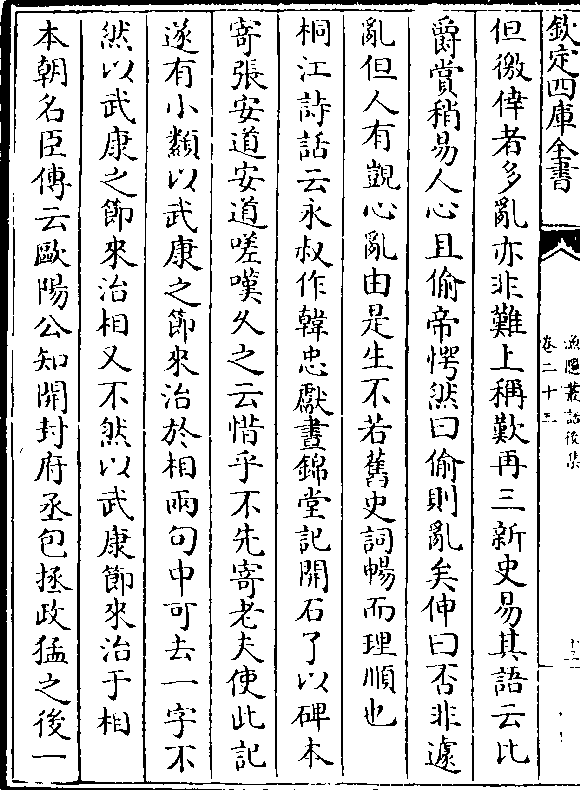 欽定四庫全書
漁隱叢話後集
卷二十三
但徼倖者多亂亦非難上稱歎再三新史易其語云比
爵賞稍易人心且偷帝愕然曰偷則亂矣伸曰否非遽
亂但人有覬心亂由是生不若舊史詞暢而理順也
桐江詩話云永叔作韓忠獻晝錦堂記開石了以碑本
寄張安道安道嗟嘆久之云惜乎不先寄老夫使此記
遂有小纇以武康之節來治於相兩句中可去一字不
然以武康之節來治相又不然以武康節來治于相
本朝名臣傳云歐陽公知開封府丞包拯政猛之後一